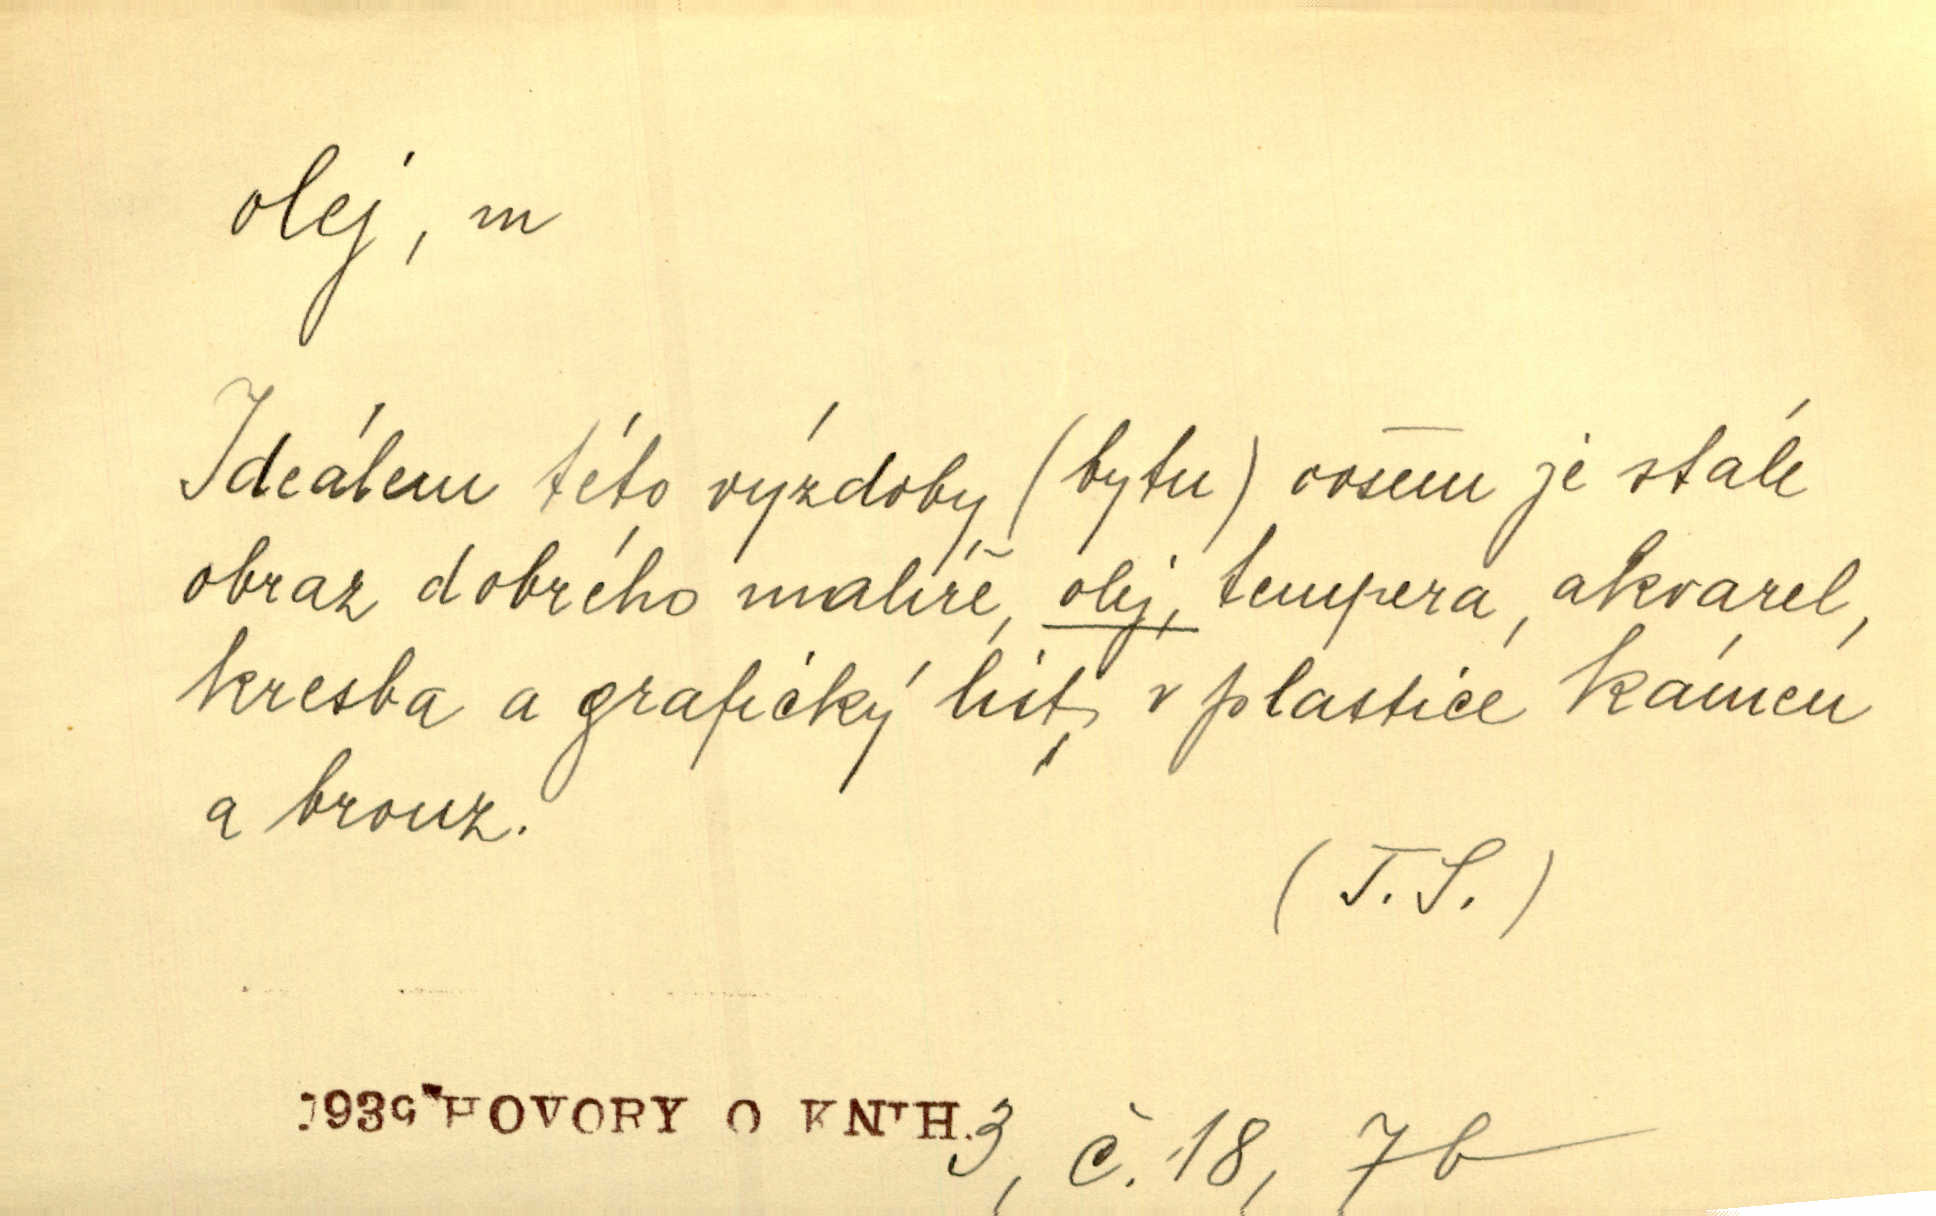 olej, m
Ideálem této výzdoby (bytu) ovšem je stále
obraz dobrého malíře, olej, tempera, akvarel,
kresba a grafický list, v plastice kámen
a bronz.
(T.S.)
1939 HOVORY O KNIH. 3, č. 18, 7b